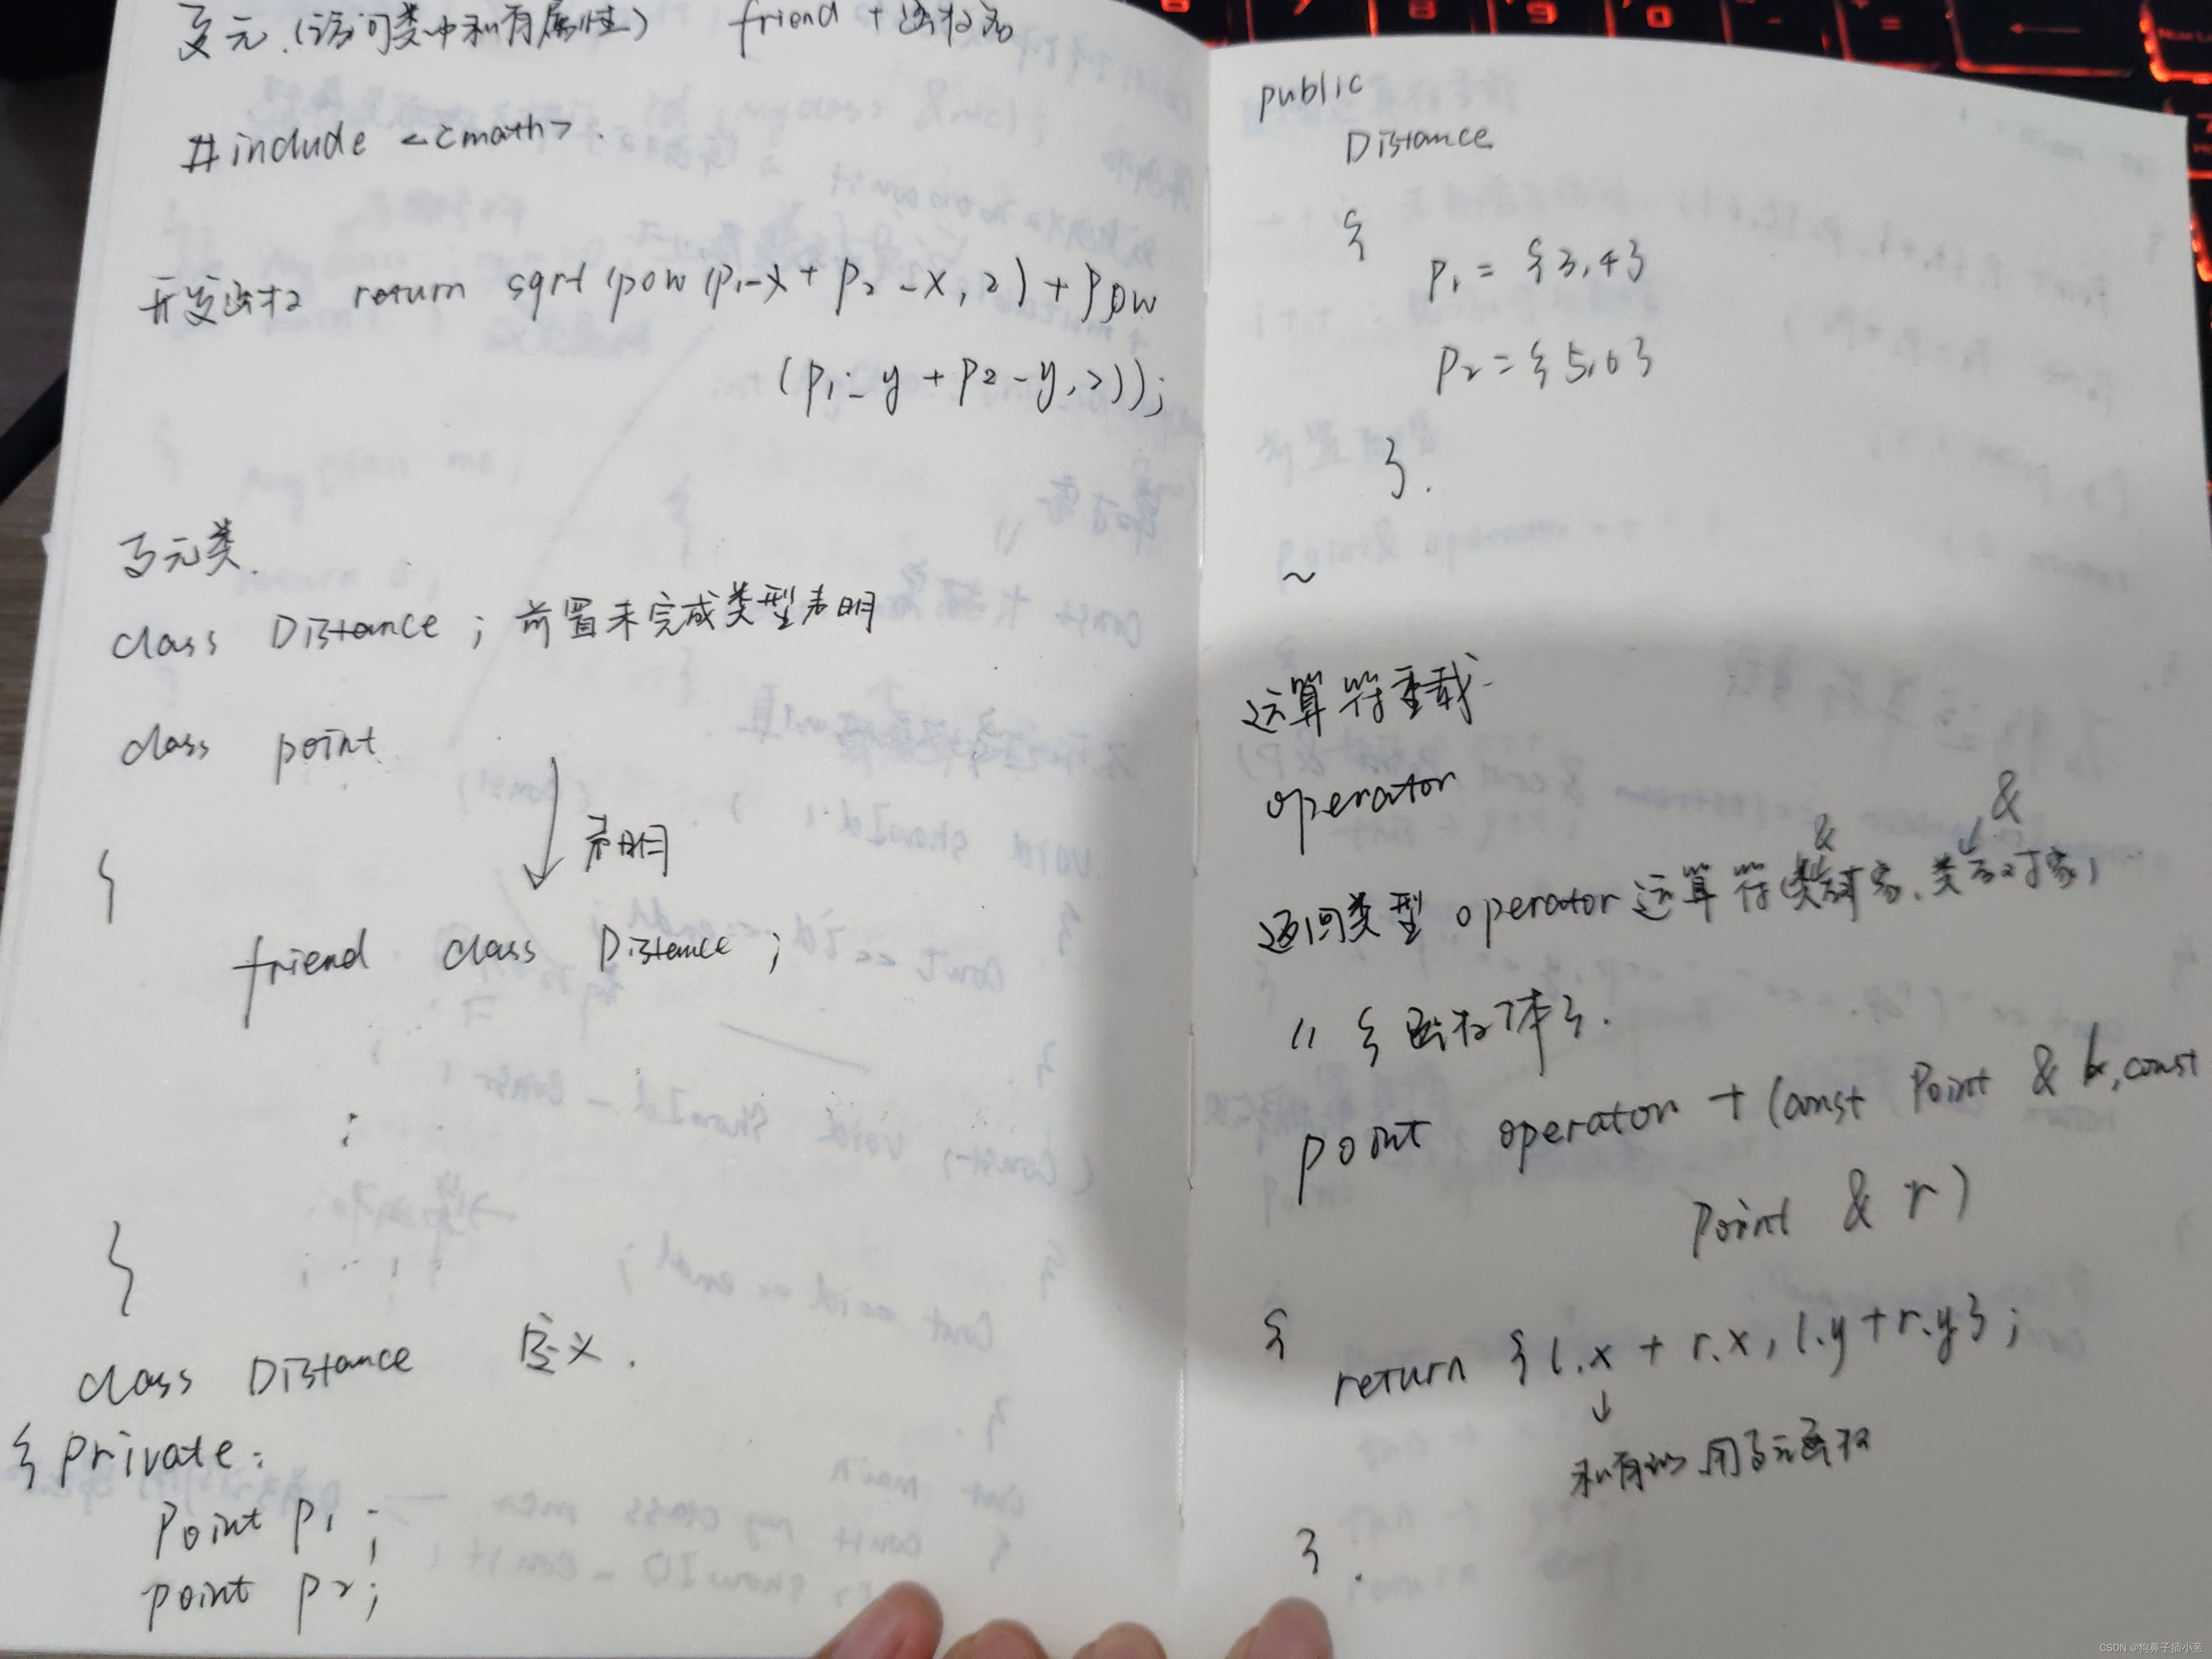 友元.(访问类中私有属性) friend + 函数名
#include <cmath>.
开发函数 return sqrt (pow (p₁-x + p₂-x, 2) + pow
(p₁-y + p2-y, 2));
友元类.
class Distance ; 前置未完成类型声明
class point
声明
{
friend class Distance ;
:
}
class Distance 定义.
{ private:
Point p₁ ;
point p₂;
public
Distance
{
p₁ = {3,4}
p₂ = {5,6}
}.
~
运算符重载
operator
& &
返回类型 operator 运算符(类对象, 类名对象)
// {函数体}.
point operator + (const Point & l, const
Point & r)
{
return {l.x + r.x, l.y + r.y} ;
↓
私有的 用友元函数
}.
CSDN @狗鼻子插小葱